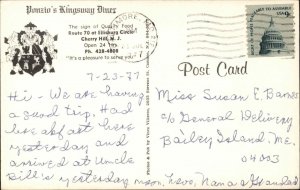 Ponzio's Kingsway Diner
The sign of Quality Food
Route 70 at Ellisburg Circle
Cherry Hill, N. J.
Open 24 Hrs.
Ph. 428-4808
"It's a pleasure to serve you"
7-23-77
Hi - We are having
a good trip. Had
breakfast here
yesterday and
arrived at Uncle
Bill's yesterday noon, Love, Nana & Grandad
Post Card
Miss Susan E. Barnes
c/o General Delivery
Bailey Island, Me.
04003